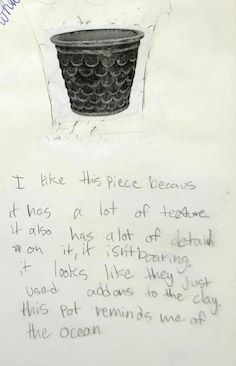 white
I like this piece becaus
it has a lot of texture
it also has alot of detail
on it, it isn't boaring.
it looks like they just
used addons to the clay.
this pot reminds me of
the ocean